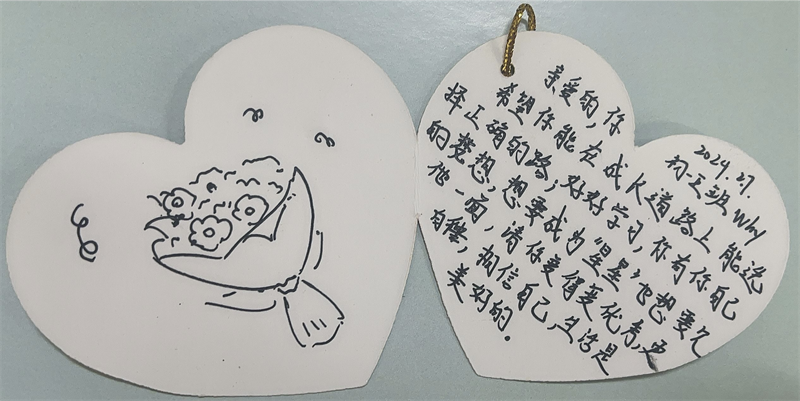 亲爱的，你
希望你能在成长道路上能选
择正确的路；好好学习，你有你自己
的梦想，想要成为“星星”也想要见
他一面，请你变得更优秀，更
自律，相信自己，生活是
美好的。
2024.2.7.
初一五班 why